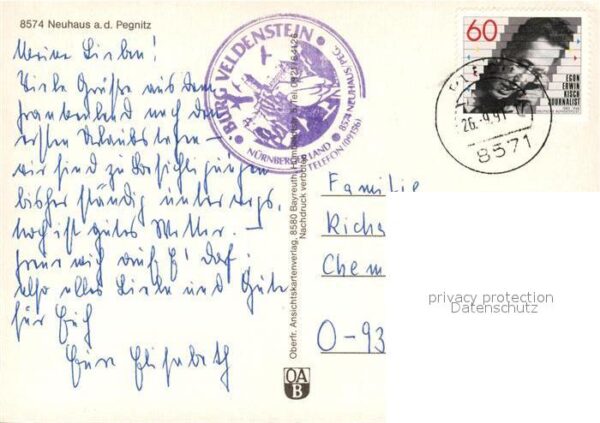 8574 Neuhaus a. d. Pegnitz
Meine Lieben!
Viele Grüße aus dem
Frankenland nach den
ersten Urlaubstagen –
wir sind zu Besichtigungen
bisher ständig unterwegs,
noch ist gutes Wetter. –
Freue mich auf
also alles Liebe und Gute
für Euch
Eure Elisabeth
BURG VELDENSTEIN
NÜRNBERGER LAND
8574 NEUHAUS/PEG.
TELEFON (09156)
Oberfr. Ansichtskartenverlag, 8580 Bayreuth
Nachdruck verboten
OA
B
60
EGON
ERWIN
KISCH
JOURNALIST
26.-9.91-17
8571
Familie
Richa
Chem
O-93
privacy protection
Datenschutz